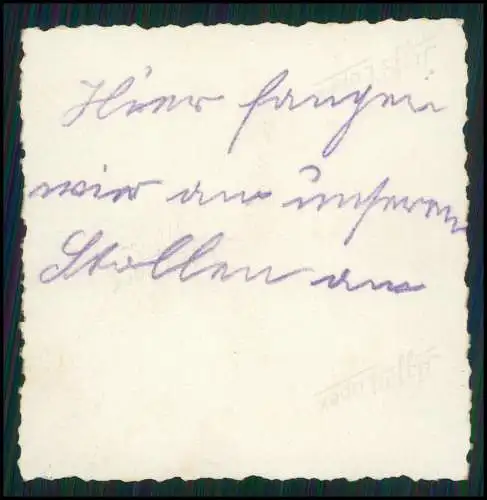 Hier fangen
wir an unseren
Stollen an